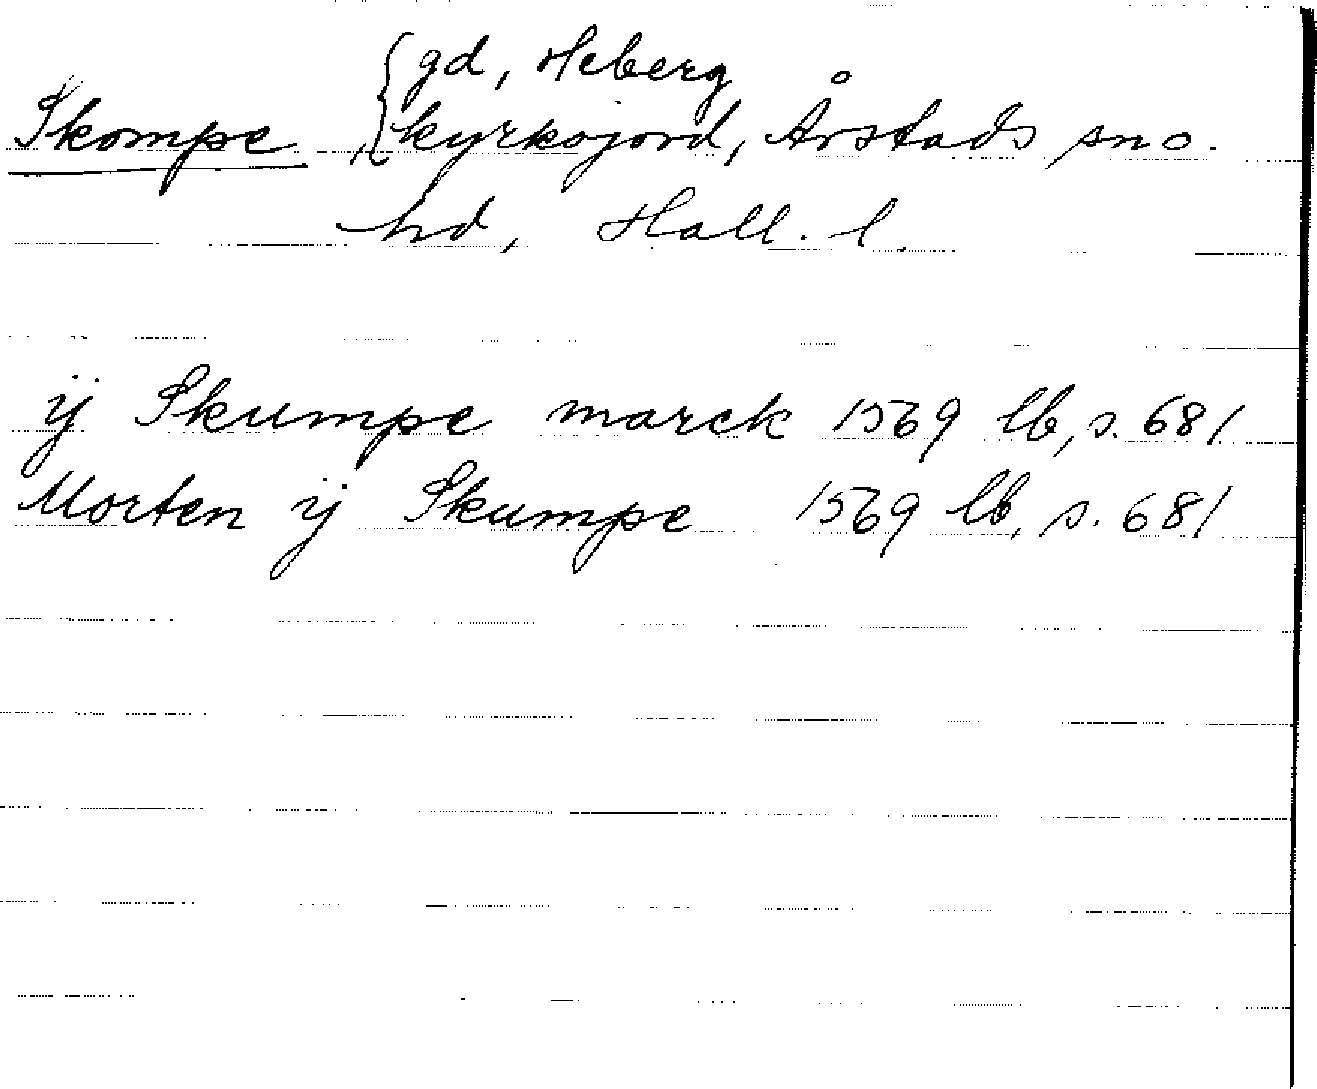 gd, Heberg
Skompe, kyrkojord, Årstads sn o.
hd, Hall. l.
ij Skumpe marck 1569 lb, s. 681
Morten ij Skumpe 1569 lb, s. 681